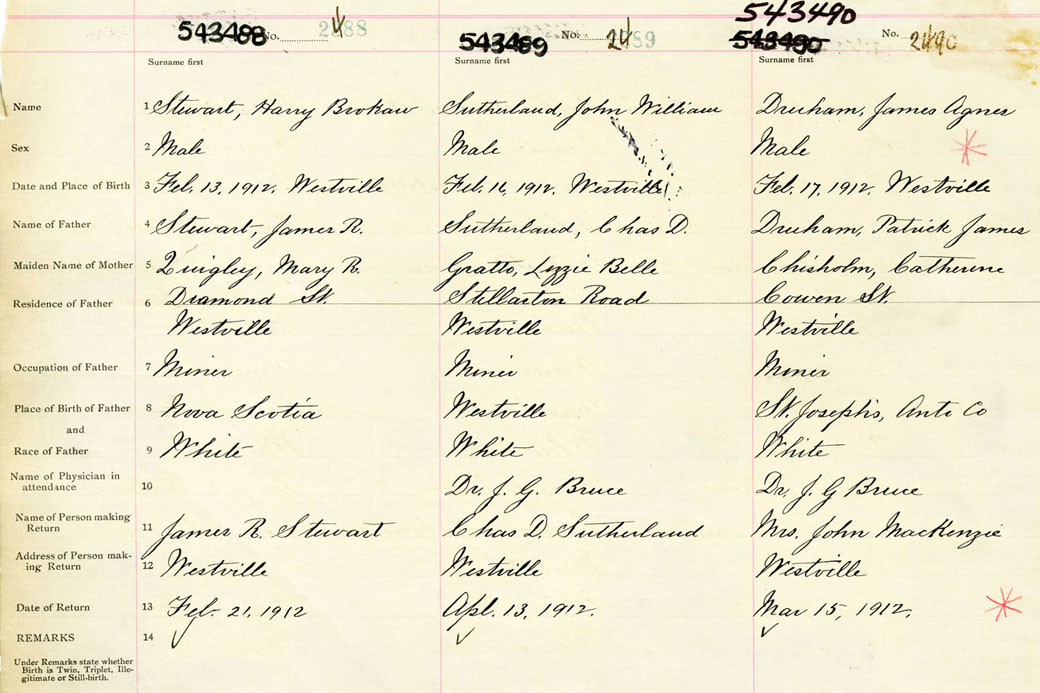 543490
543488 No. 2488
543489 No. 2489
543490 No. 2490
Surname first Surname first Surname first
Name 1 Stewart, Harry Brokaw Sutherland, John William Druham, James Agnes
Sex 2 Male Male Male
Date and Place of Birth 3 Feb. 13, 1912, Westville Feb. 16, 1912, Westville Feb. 17, 1912, Westville
Name of Father 4 Stewart, James R. Sutherland, Chas D. Druham, Patrick James
Maiden Name of Mother 5 Quigley, Mary R. Gratto, Lizzie Belle Chisholm, Catherine
Residence of Father 6 Diamond St. Stellarton Road Cowen St.
Westville Westville Westville
Occupation of Father 7 Miner Miner Miner
Place of Birth of Father 8 Nova Scotia Westville St. Joseph's, Anti Co
and
Race of Father 9 White White White
Name of Physician in
attendance 10 Dr. J. G. Bruce Dr. J. G Bruce
Name of Person making
Return 11 James R. Stewart Chas D. Sutherland Mrs. John MacKenzie
Address of Person mak-
ing Return 12 Westville Westville Westville
Date of Return 13 Feb. 21, 1912 Apl. 13, 1912. Mar 15, 1912,
REMARKS 14
Under Remarks state whether
Birth is Twin, Triplet, Ille-
gitimate or Still-birth.